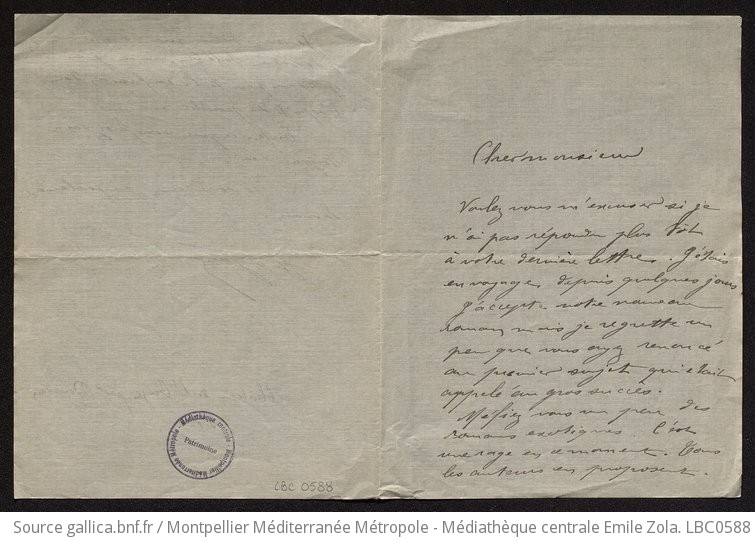 Cher monsieur
Voulez vous m'excuser si je
n'ai pas répondu plus tôt
à votre dernière lettre. J'étais
en voyage depuis quelques jours.
J'accepte votre nouveau
roman, mais je regrette un
peu que vous ayez renoncé
au premier sujet qui était
appelé à un gros succès.
Méfiez vous un peu des
romans exotiques. C'est
une rage en ce moment. Tous
les auteurs en proposent.
Médiathèque centrale - Montpellier Méditerranée Métropole
Patrimoine
LBC 0588
Source gallica.bnf.fr / Montpellier Méditerranée Métropole - Médiathèque centrale Emile Zola. LBC0588